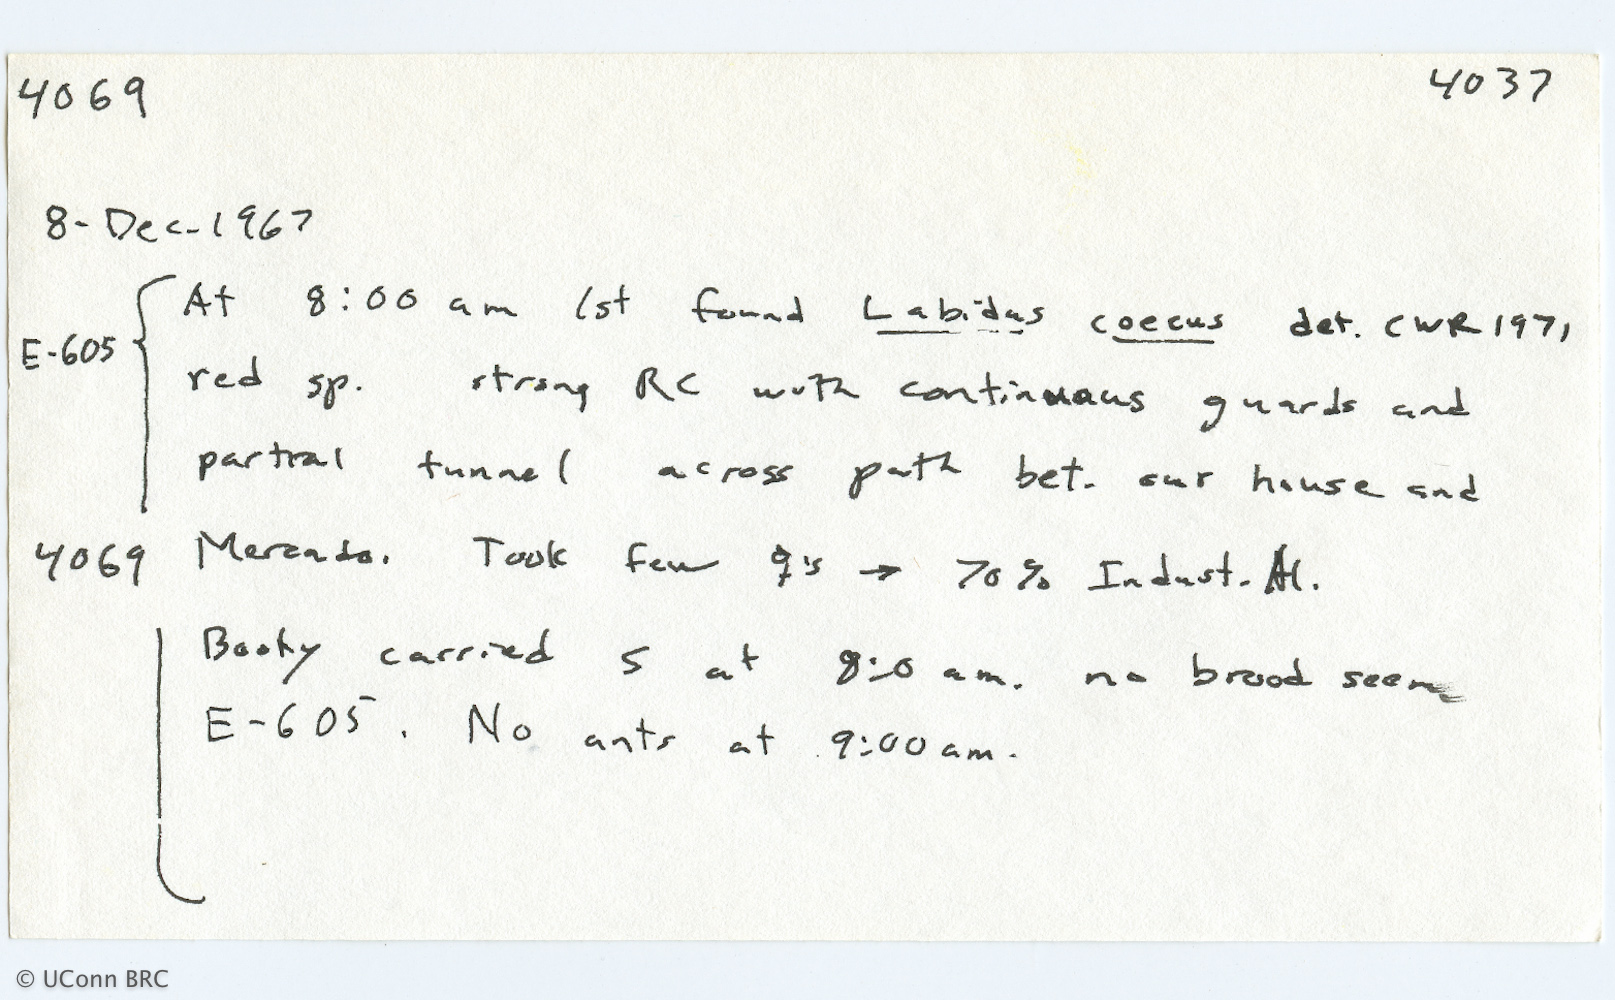 4069 4037
8-Dec-1967
At 8:00 am 1st found Labidus coecus det. CWR 1971
E-605
red sp. strong RC with continuous guards and
partial tunnel across path bet. our house and
4069 Mercado. Took few ☿'s → 70% Indust. Al.
Booty carried S at 8:0 am. no brood seen
E-605. No ants at 9:00 am.
© UConn BRC